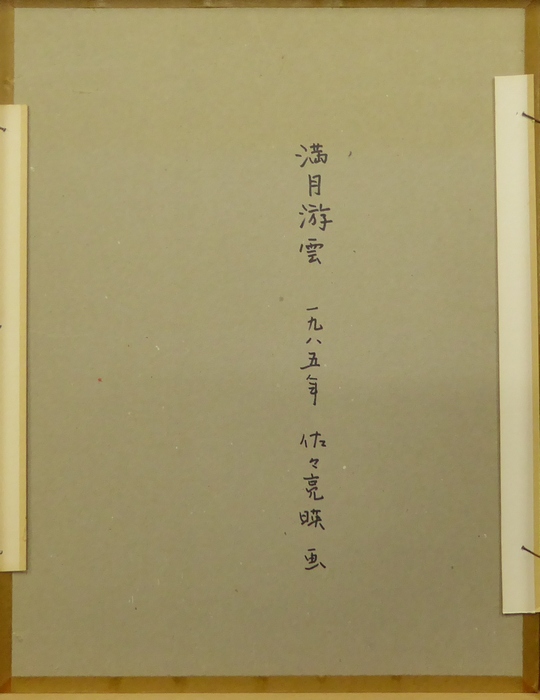 満月游雲 一九八五年 佐々亮暎 画